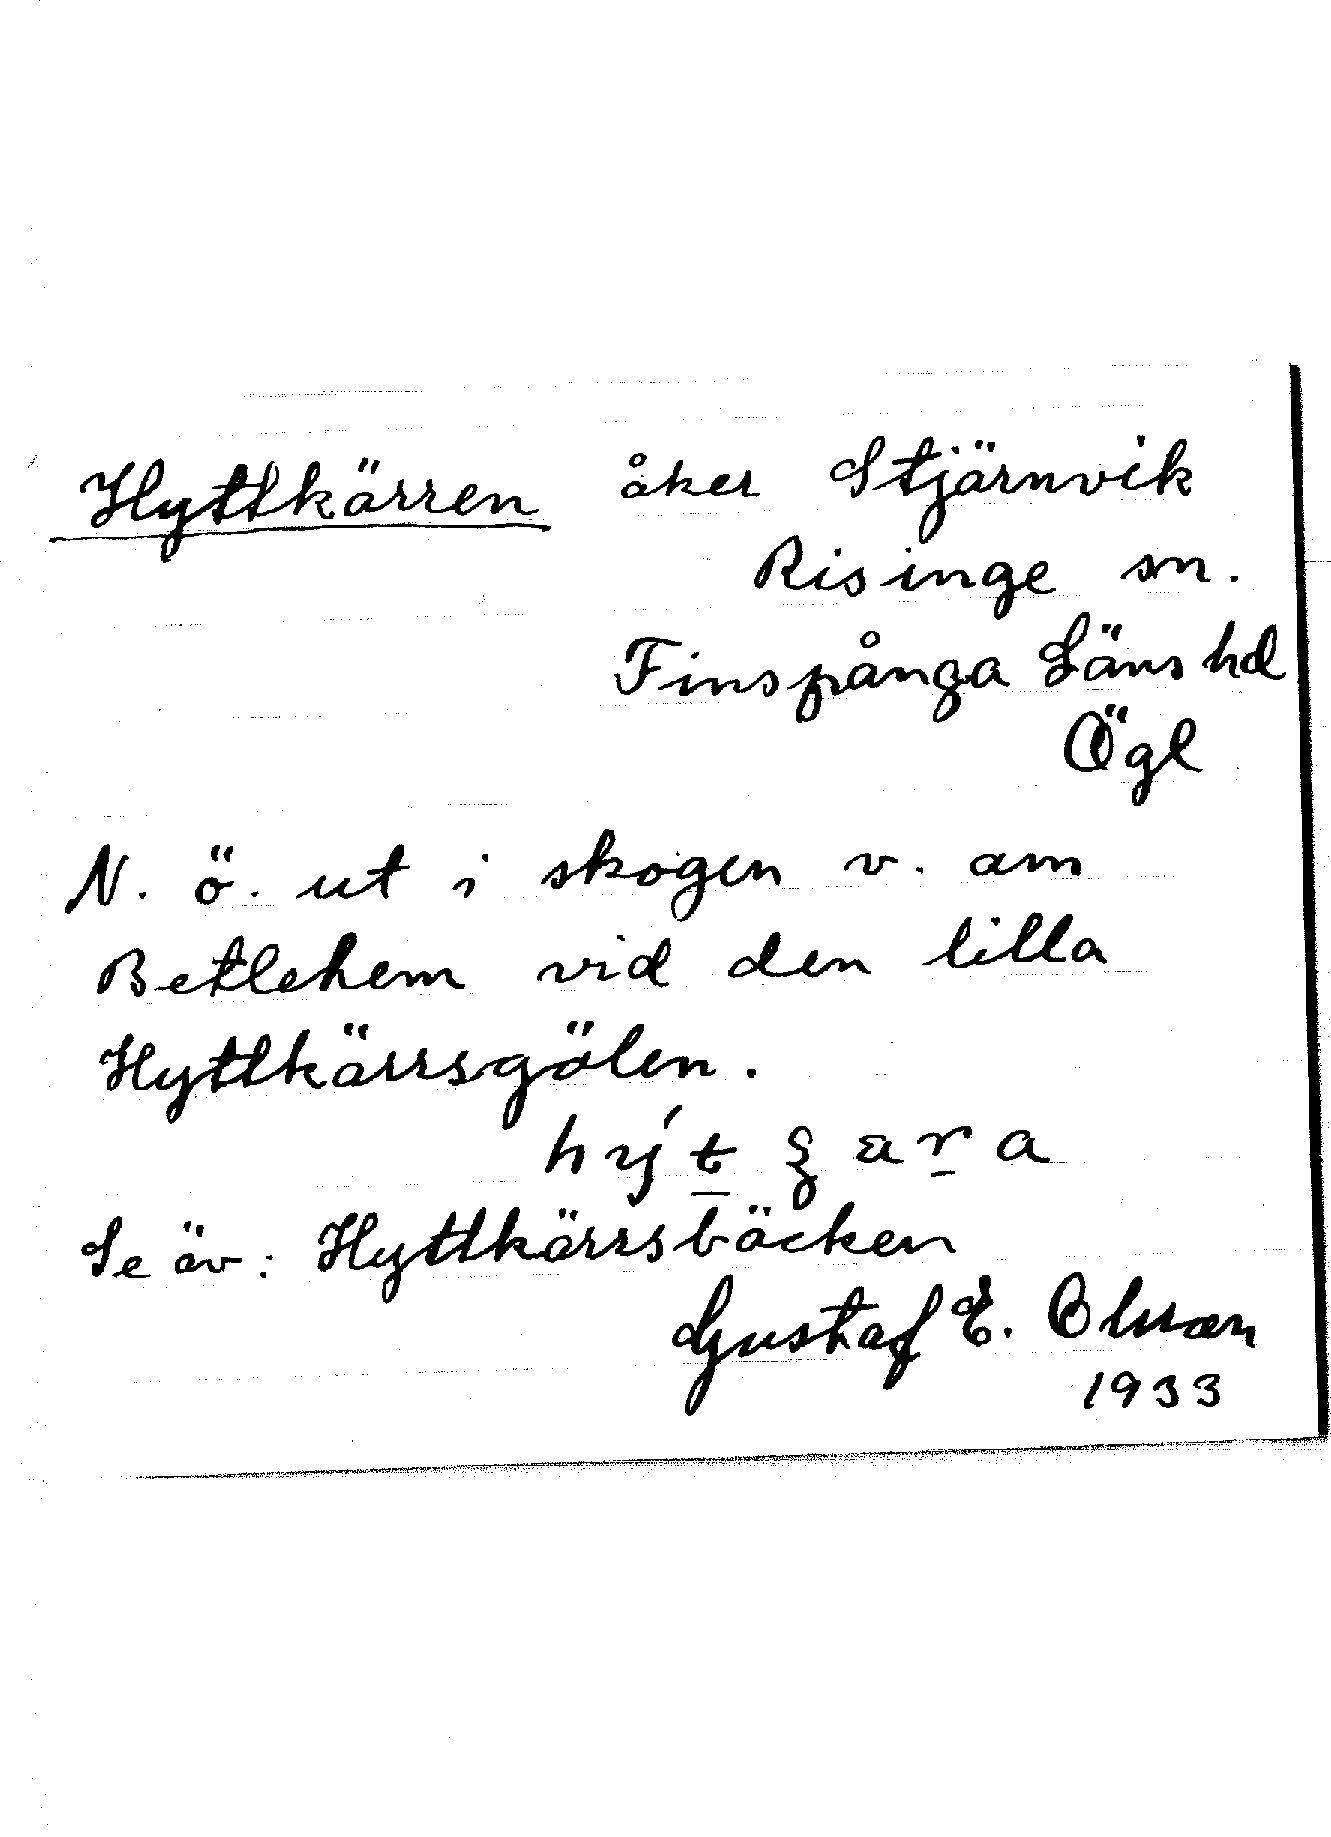 Hyttkärren åker Stjärnvik
Risinge sn.
Finspånga Läns hd
Ögl
N. ö. ut i skogen v. om
Betlehem vid den lilla
Hyttkärrsgölen.
Se äv: Hyttkärrsbäcken
Gustaf E. Olsson
1933